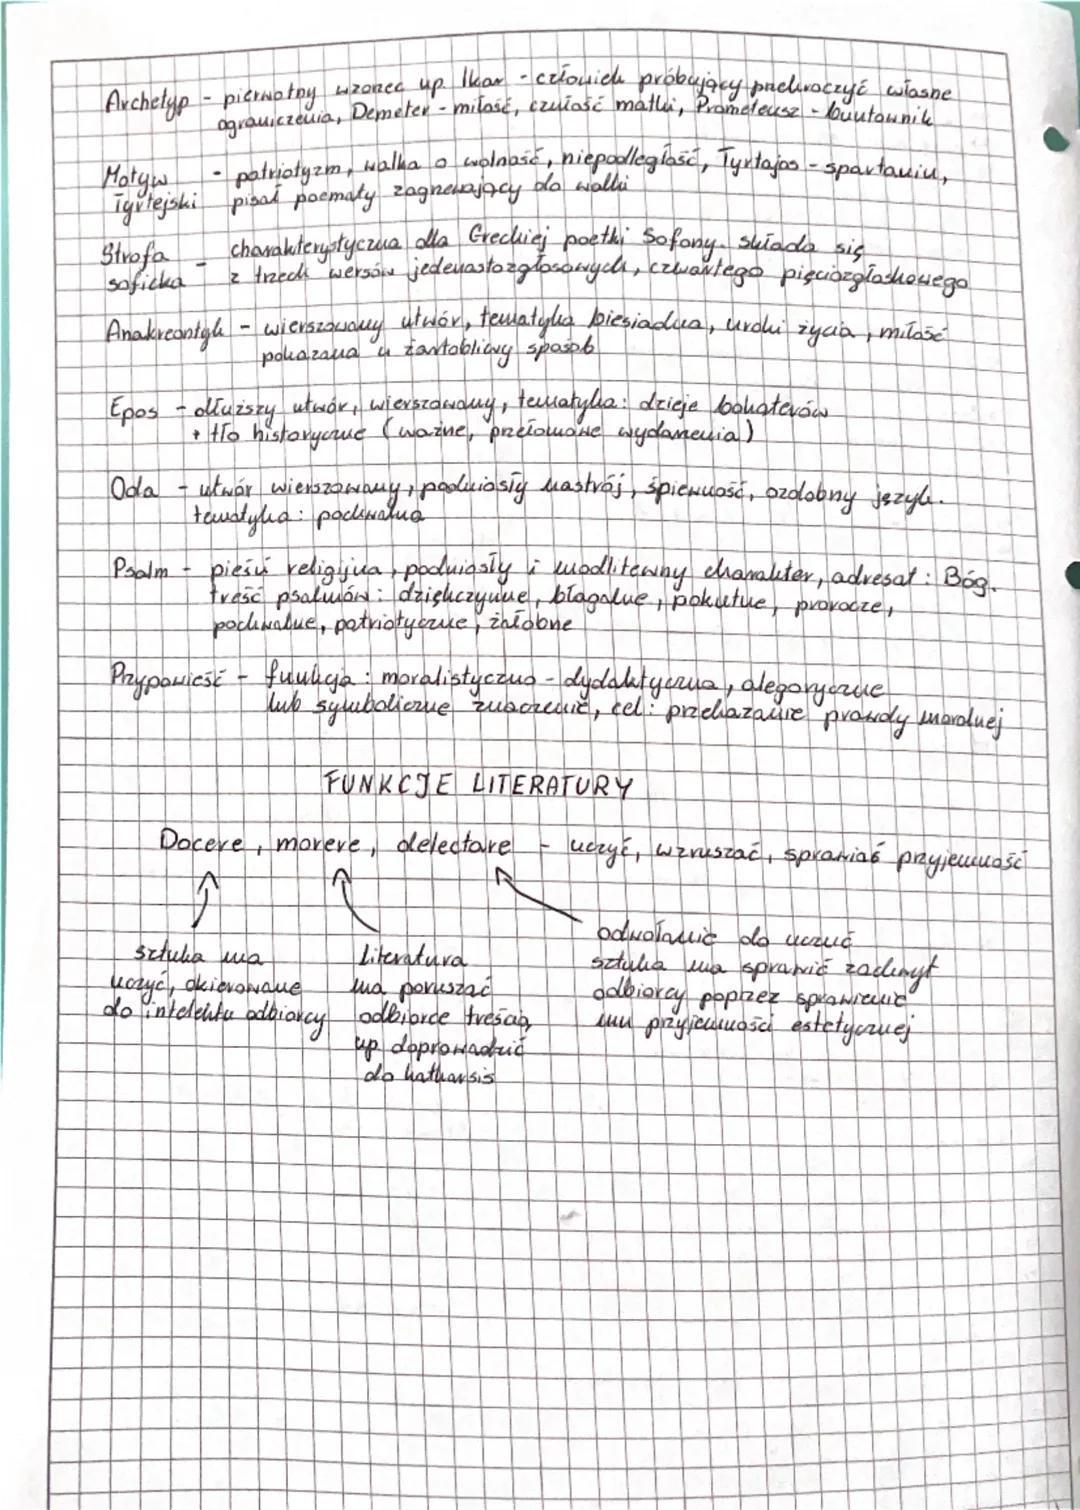 Archetyp - pierwotny wzorzec np. Ikar - człowiek próbujący przekroczyć własne
ograniczenia, Demeter - miłość, czułość matki, Prometeusz - buntownik
Motyw - patriotyzm, walka o wolność, niepodległość, Tyrtajos - spartanin,
Tyrtejski pisał poematy zagrzewający do walki
Strofa - charakterystyczna dla Greckiej poetki Safony. składa się
saficka z trzech wersów jedenastozgłosowych, czwartego pięciozgłoskowego
Anakreontyk - wierszowany utwór, tematyka biesiadna, uroki życia, miłość
pokazana w żartobliwy sposób
Epos - dłuższy utwór, wierszowany, tematyka: dzieje bohaterów
+ tło historyczne (ważne, przełomowe wydarzenia)
Oda - utwór wierszowany, podniosły nastrój, śpiewność, ozdobny język.
tematyka: pochwalna
Psalm - pieśń religijna, podniosły i modlitewny charakter, adresat: Bóg.
treść psalmów: dziękczynne, błagalne, pokutne, prorocze,
pochwalne, patriotyczne, żałobne
Przypowieść - funkcja: moralistyczno - dydaktyczna, alegoryczne
lub symboliczne znaczenie, cel: przekazanie prawdy moralnej
FUNKCJE LITERATURY
Docere, movere, delectare - uczyć, wzruszać, sprawiać przyjemność
sztuka ma
uczyć, okierowane
do intelektu odbiorcy
literatura
ma poruszać
odbiorce treścią,
np. doprowadzić
do katharsis
odwołanie do uczuć
sztuka ma sprawić zachwyt
odbiorcy poprzez sprawienie
mu przyjemności estetycznej